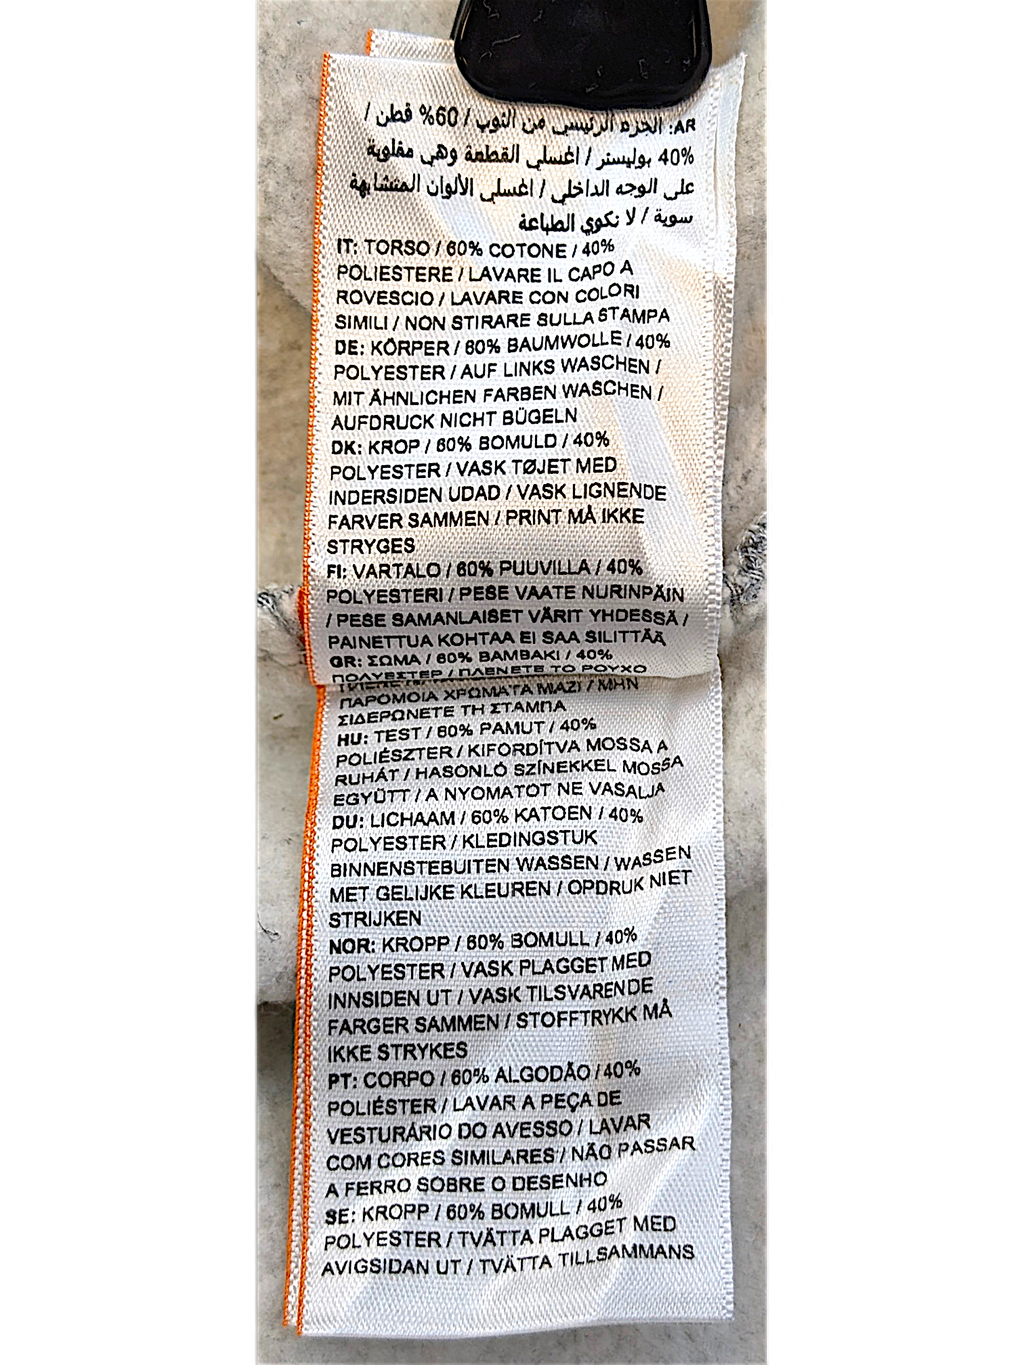 AR: الجزء الرئيسي من الثوب / 60% قطن /
40% بوليستر / اغسلي القطعة وهي مقلوبة
على الوجه الداخلي / اغسلي الألوان المتشابهة
سوية / لا تكوي الطباعة
IT: TORSO / 60% COTONE / 40%
POLIESTERE / LAVARE IL CAPO A
ROVESCIO / LAVARE CON COLORI
SIMILI / NON STIRARE SULLA STAMPA
DE: KÖRPER / 60% BAUMWOLLE / 40%
POLYESTER / AUF LINKS WASCHEN /
MIT ÄHNLICHEN FARBEN WASCHEN /
AUFDRUCK NICHT BÜGELN
DK: KROP / 60% BOMULD / 40%
POLYESTER / VASK TØJET MED
INDERSIDEN UDAD / VASK LIGNENDE
FARVER SAMMEN / PRINT MÅ IKKE
STRYGES
FI: VARTALO / 60% PUUVILLA / 40%
POLYESTERI / PESE VAATE NURINPÄIN
/ PESE SAMANLAISET VÄRIT YHDESSÄ /
PAINETTUA KOHTAA EI SAA SILITTÄÄ
GR: ΣΩΜΑ / 60% ΒΑΜΒΑΚΙ / 40%
ΠΟΛΥΕΣΤΕΡ / ΠΛΕΝΕΤΕ ΤΟ ΡΟΥΧΟ
ΠΑΡΟΜΟΙΑ ΧΡΩΜΑΤΑ ΜΑΖΙ / ΜΗΝ
ΣΙΔΕΡΩΝΕΤΕ ΤΗ ΣΤΑΜΠΑ
HU: TEST / 60% PAMUT / 40%
POLIÉSZTER / KIFORDÍTVA MOSSA A
RUHÁT / HASONLÓ SZÍNEKKEL MOSSA
EGYÜTT / A NYOMATOT NE VASALJA
DU: LICHAAM / 60% KATOEN / 40%
POLYESTER / KLEDINGSTUK
BINNENSTEBUITEN WASSEN / WASSEN
MET GELIJKE KLEUREN / OPDRUK NIET
STRIJKEN
NOR: KROPP / 60% BOMULL / 40%
POLYESTER / VASK PLAGGET MED
INNSIDEN UT / VASK TILSVARENDE
FARGER SAMMEN / STOFFTRYKK MÅ
IKKE STRYKES
PT: CORPO / 60% ALGODÃO / 40%
POLIÉSTER / LAVAR A PEÇA DE
VESTURÁRIO DO AVESSO / LAVAR
COM CORES SIMILARES / NÃO PASSAR
A FERRO SOBRE O DESENHO
SE: KROPP / 60% BOMULL / 40%
POLYESTER / TVÄTTA PLAGGET MED
AVIGSIDAN UT / TVÄTTA TILLSAMMANS